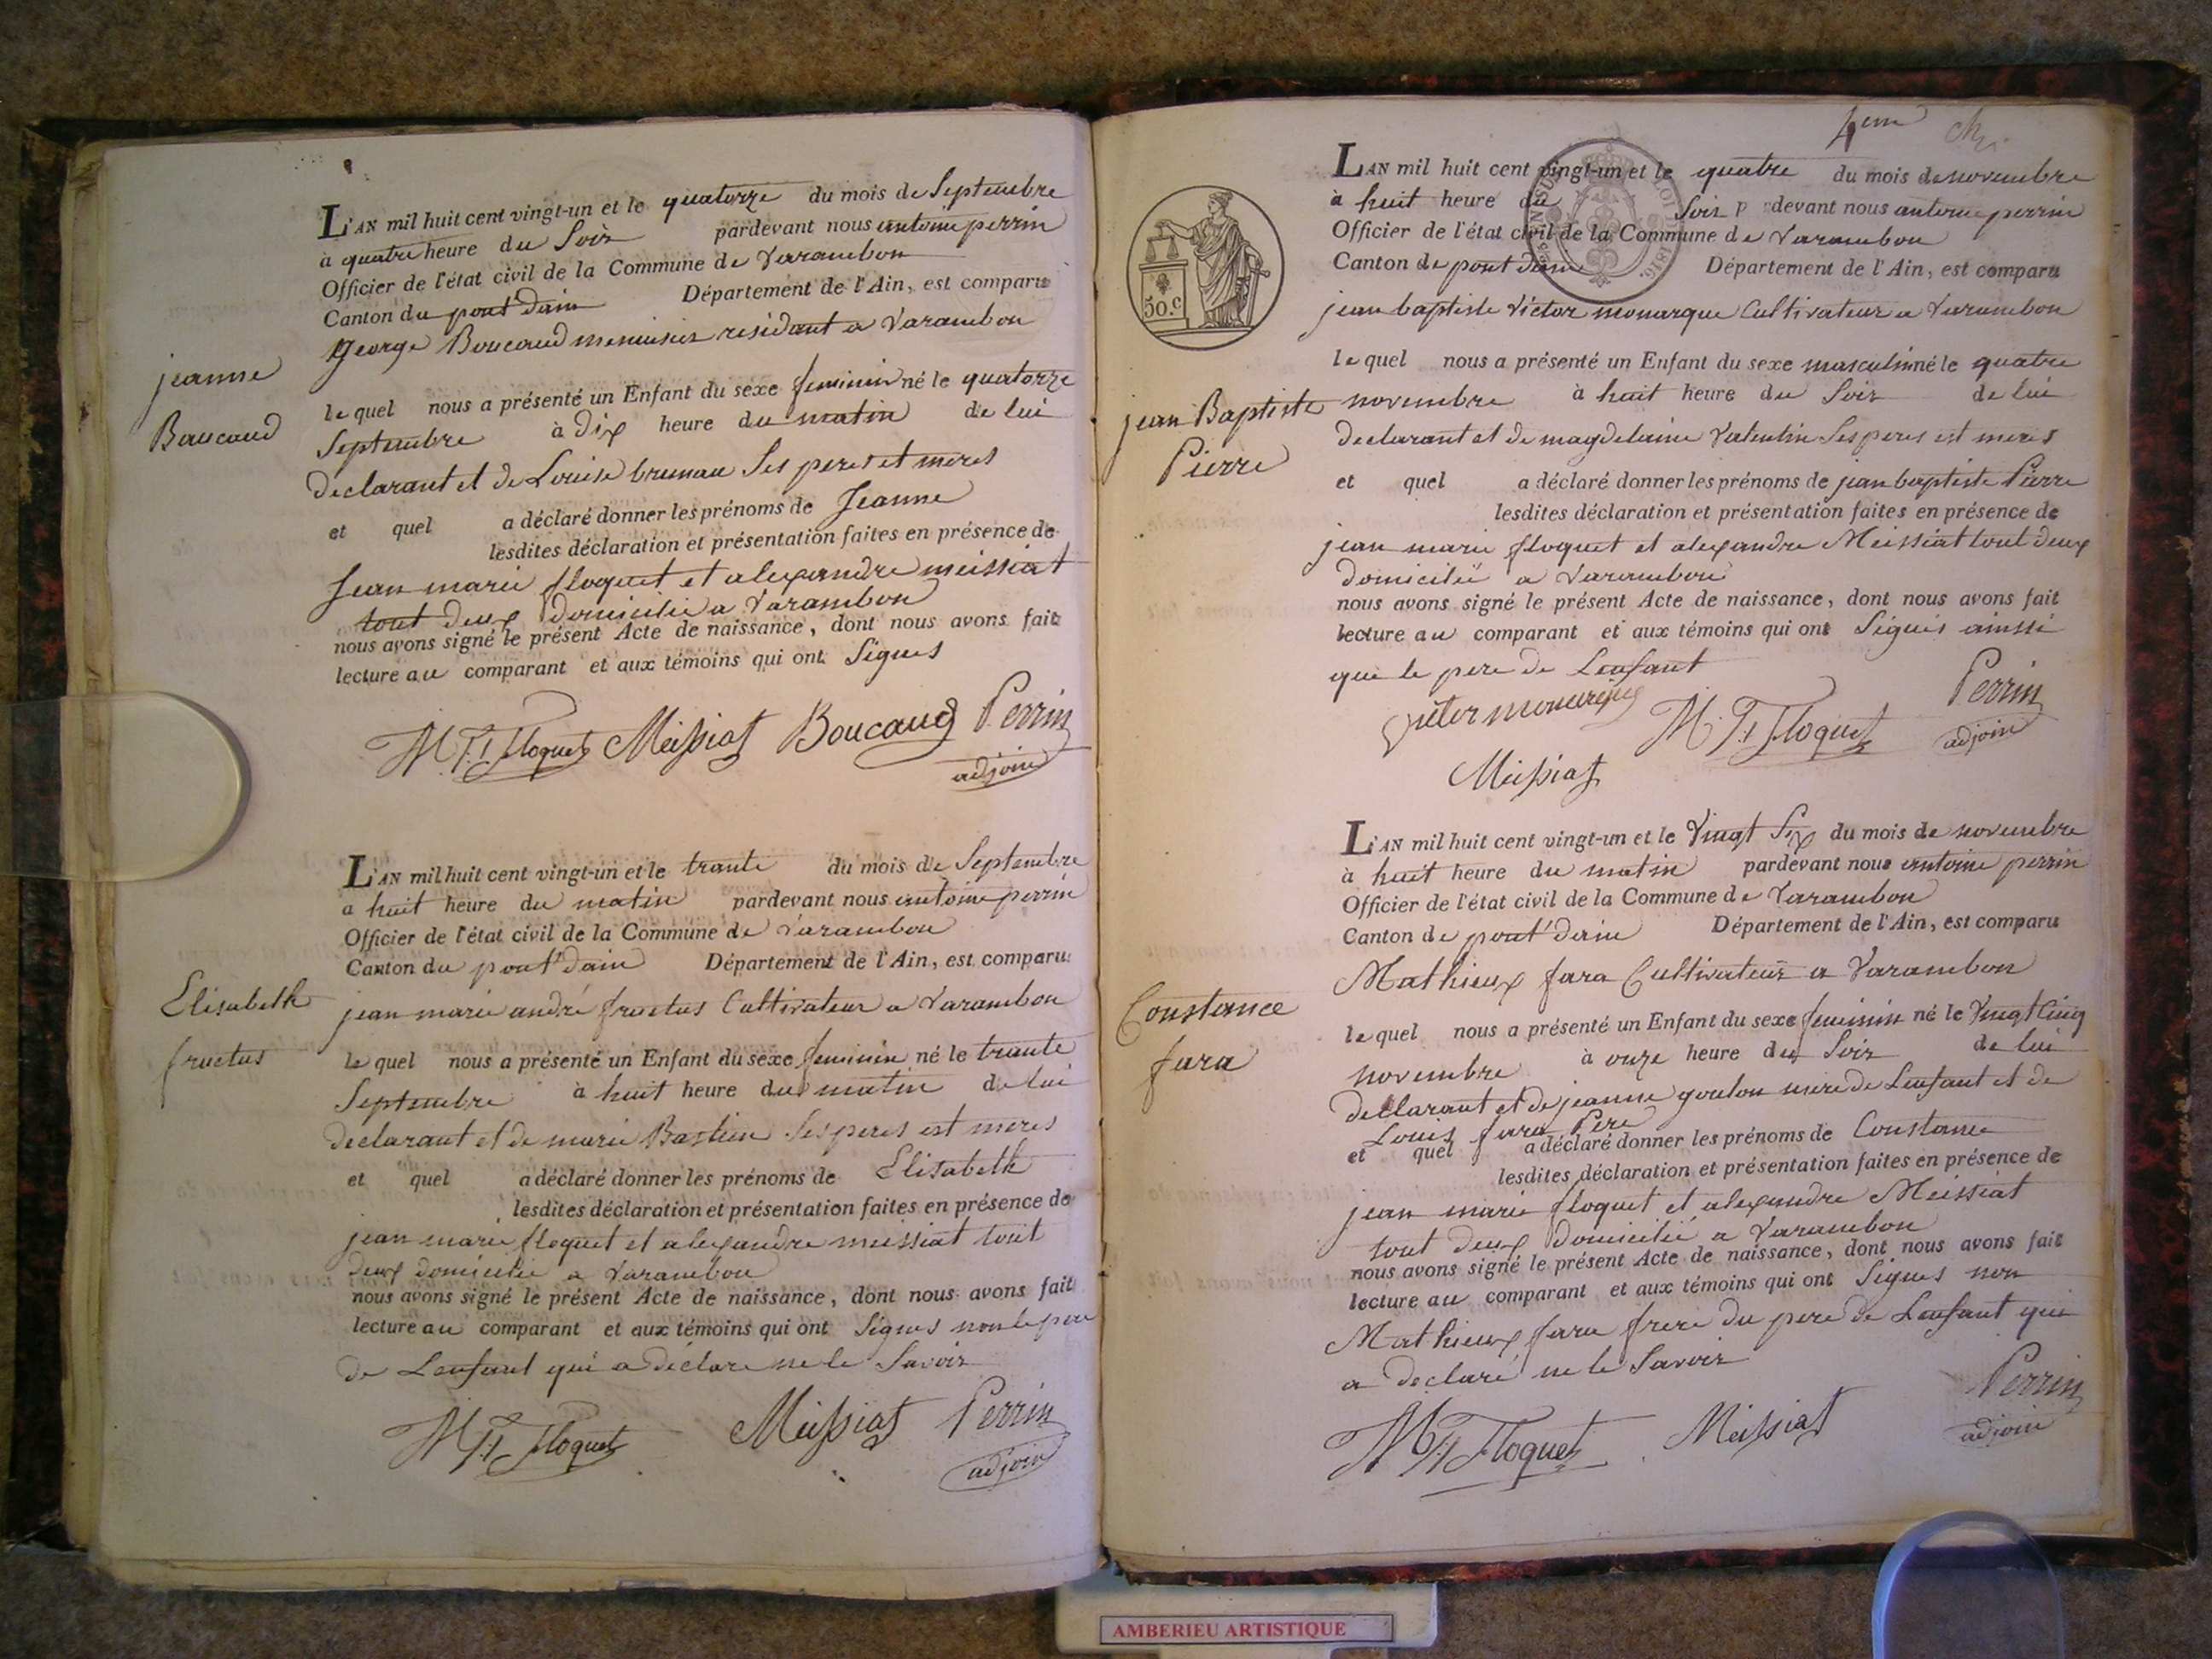 L'AN mil huit cent vingt-un et le quatorze du mois de Septembre
à quatre heure du Soir pardevant nous antoine perrin
Officier de l'état civil de la Commune de Varambon
Canton du pont dain Département de l'Ain, est comparu
george Boucaud menuisier residant a Varambon
jeanne
Boucaud
le quel nous a présenté un Enfant du sexe feminin né le quatorze
Septembre à dix heure du matin de lui
declarant et de Louise bruneau Ses peres et meres
et quel a déclaré donner les prénoms de Jeanne
lesdites déclaration et présentation faites en présence de
Jean marie floquet et alexandre meissiat
tout deux domicilie a Varambon
nous avons signé le présent Acte de naissance, dont nous avons fait
lecture au comparant et aux témoins qui ont Signes
Floquet Meissiat Boucaud Perrin
adjoin
L'AN mil huit cent vingt-un et le trante du mois de Septembre
a huit heure du matin pardevant nous antoine perrin
Officier de l'état civil de la Commune de Varambon
Canton du pont dain Département de l'Ain, est comparu
jean marie andré fructus Cultivateur a Varambon
Elisabeth
fructus
le quel nous a présenté un Enfant du sexe feminin né le trante
Septembre à huit heure du matin de lui
declarant et de marie Bastien Ses peres est meres
et quel a déclaré donner les prénoms de Elisabeth
lesdites déclaration et présentation faites en présence de
jean marie floquet et alexandre meissiat tout
deux domicilie a Varambon
nous avons signé le présent Acte de naissance, dont nous avons fait
lecture au comparant et aux témoins qui ont Signes non le pere
de Lenfant qui a déclare ne le Savoir
Floquet Meissiat Perrin
adjoin
4eme
L'AN mil huit cent vingt-un et le quatre du mois de novembre
à huit heure du Soir p devant nous antoine perrin
Officier de l'état civil de la Commune de Varambon
Canton de pont dain Département de l'Ain, est comparu
50.c
1816.
jean baptiste Victor monarque Cultivateur a Varambon
jean Baptiste
Pierre
le quel nous a présenté un Enfant du sexe masculin né le quatre
novembre à huit heure du Soir de lui
declarant et de magdelaine Valentin Ses peres est meres
et quel a déclaré donner les prénoms de jean baptiste Pierre
lesdites déclaration et présentation faites en présence de
jean marie floquet et alexandre Meissiat tout deux
domicilié a Varambon
nous avons signé le présent Acte de naissance, dont nous avons fait
lecture au comparant et aux témoins qui ont Signés ainssi
que le pere de Lenfant
Floquet Perrin
adjoin
Meissiat
L'AN mil huit cent vingt-un et le Vingt Six du mois de novembre
à huit heure du matin pardevant nous antoine perrin
Officier de l'état civil de la Commune de Varambon
Canton de pont dain Département de l'Ain, est comparu
Mathieux fara Cultivateur a Varambon
Constance
fara
le quel nous a présenté un Enfant du sexe feminin né le Vingt Cinq
novembre à onze heure du Soir de lui
declarant et de jeanne goulon mere de Lenfant et de
Louis fara Pere
et quel a déclaré donner les prénoms de Constance
lesdites déclaration et présentation faites en présence de
jean marie floquet et alexandre Meissiat
tout deux domicilié a Varambon
nous avons signé le présent Acte de naissance, dont nous avons fait
lecture au comparant et aux témoins qui ont Signes non
Mathieux fara frere du pere de Lenfant qui
a declaré ne le Savoir
Floquet Meissiat Perrin
adjoin
AMBERIEU ARTISTIQUE